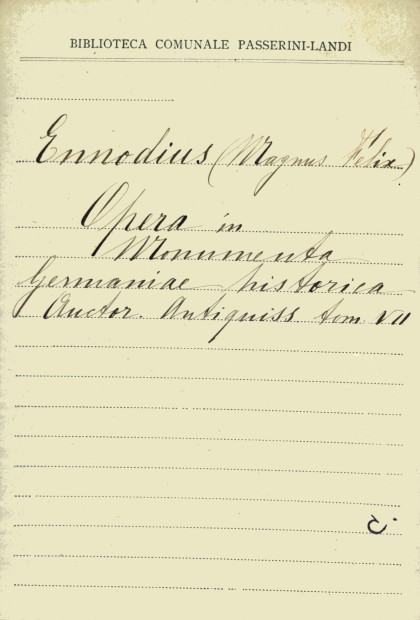 BIBLIOTECA COMUNALE PASSERINI-LANDI
Ennodius (Magnus Felix)
Opera in
Monumenta
Germaniae historica
Auctor. Antiquiss tom VII